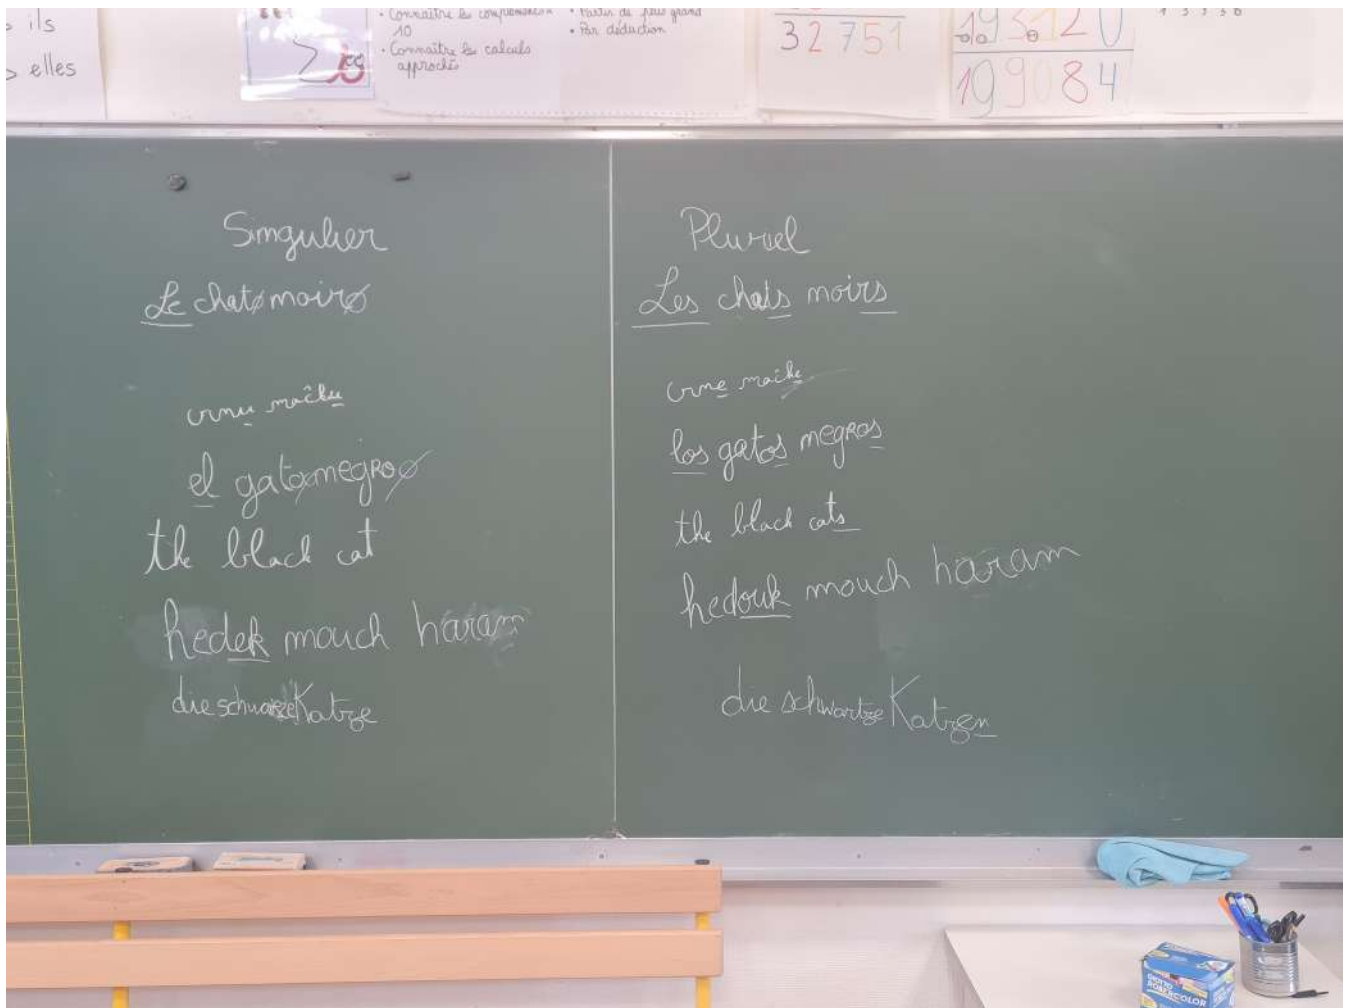 ils
elles
• Connaître les compléments à
10
• Connaître les calculs
approchés
• Partir du plus grand
• Par déduction
32751
193120
199084
Singulier
Le chatø noirø
el gatoø negroø
the black cat
hedek mouch haram
die schwarze Katze
Pluriel
Les chats noirs
los gatos negros
the black cats
hedouk mouch haram
die schwartze Katzen
GIOTTO
ROBERCOLOR